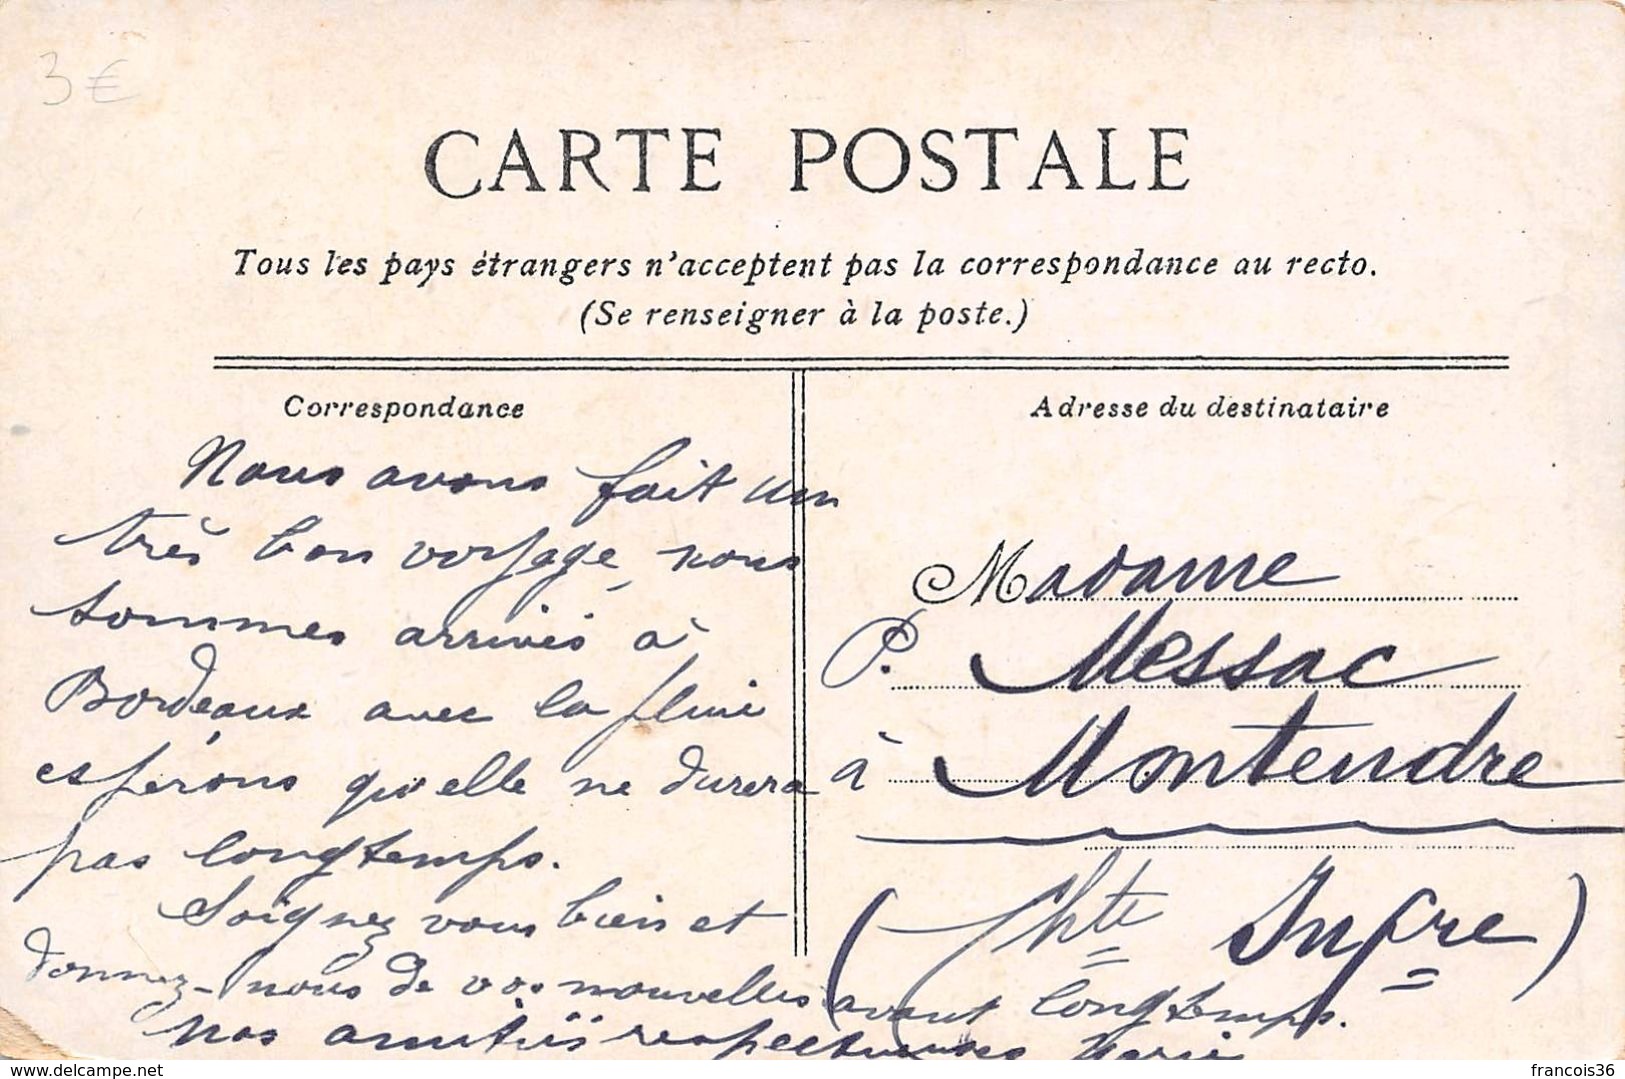 3 €
CARTE POSTALE
Tous les pays étrangers n'acceptent pas la correspondance au recto.
(Se renseigner à la poste.)
Correspondance
Nous avons fait un
très bon voyage, nous
sommes arrivés à
Bordeaux avec la pluie
espérons qu'elle ne durera
pas longtemps.
Soignez vous bien et
donnez-nous de vos nouvelles avant longtemps.
Nos amitiés respectueuses Marie
Adresse du destinataire
Madame
P. Messac
à Montendre
(Chte Infre)
delcampe.net
francois36